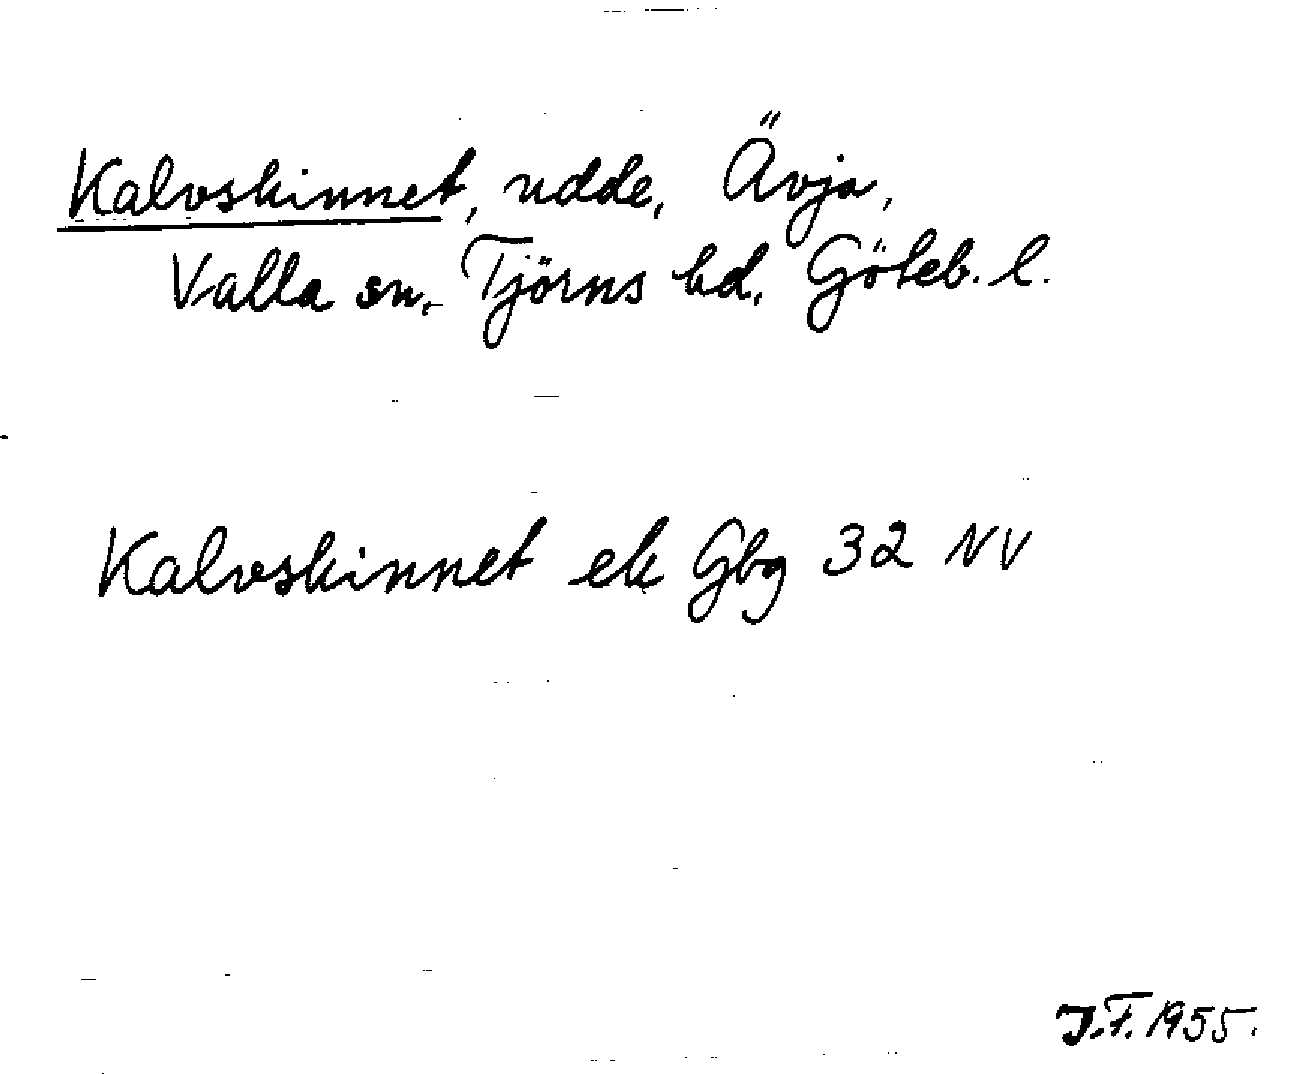 Kalvskinnet, udde, Ävja,
Valla sn, Tjörns hd, Göteb. l.
Kalvskinnet ek Gbg 32 NV
J.F. 1955.